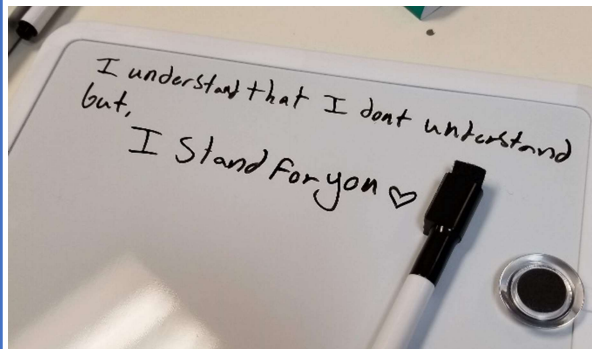 I understand that I dont understand
but,
I Stand for you ♡